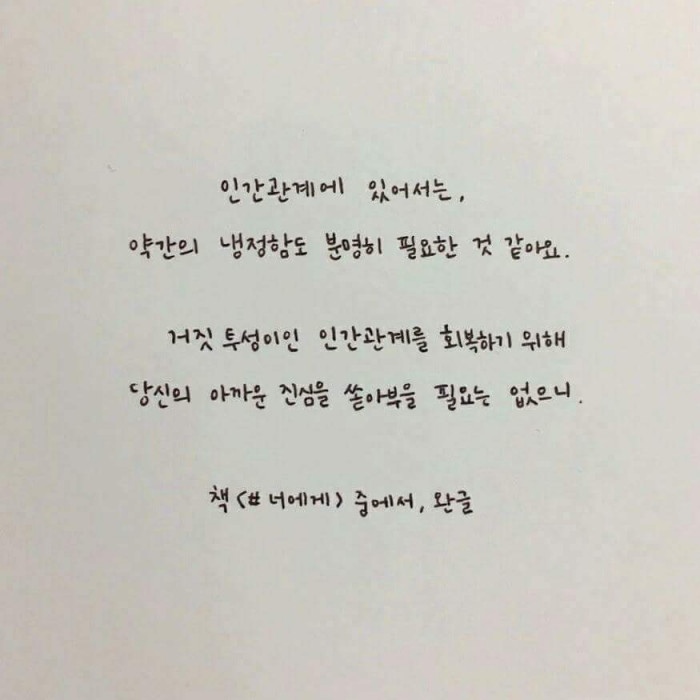 인간관계에 있어서는,
약간의 냉정함도 분명히 필요한 것 같아요.
거짓 투성이인 인간관계를 회복하기 위해
당신의 아까운 진심을 쏟아부을 필요는 없으니.
책 <#너에게> 중에서, 완글